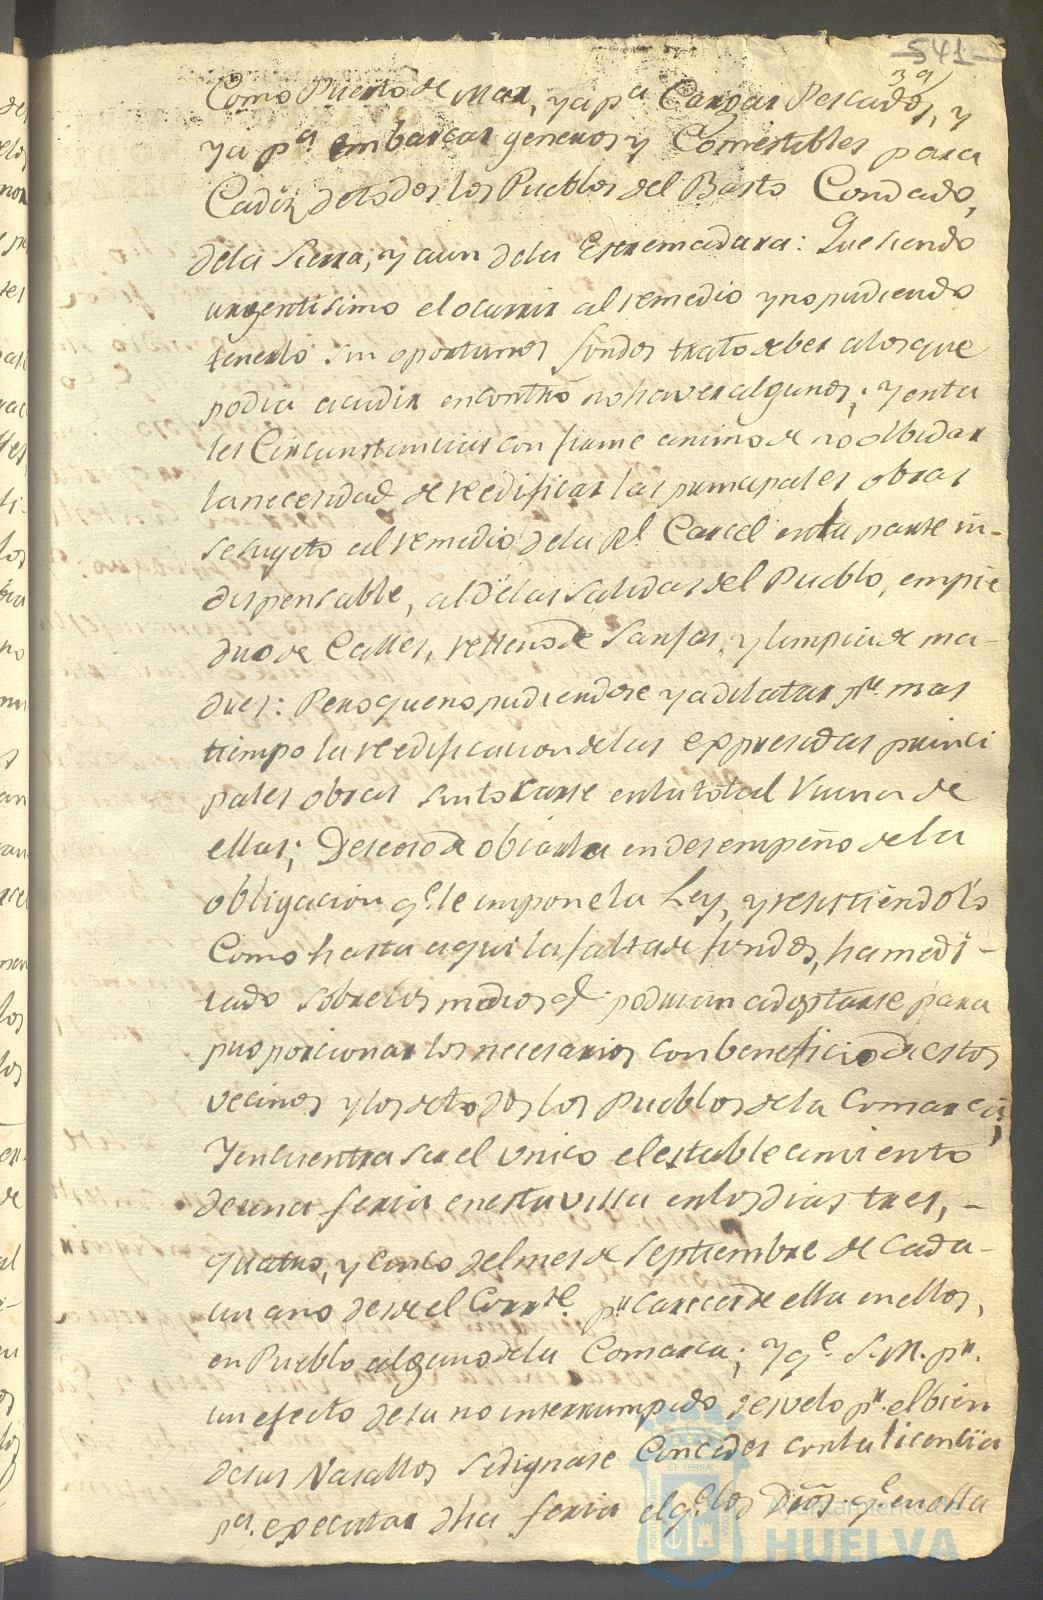 541
39
Como Puerto de Mar, ya pª Cargar Pescados, y
ya pª embarcar generos y Comestibles para
Cadiz de todos los Pueblos del Basto Condado,
dela Sierra, y aun dela Extremadura: Que siendo
urgentisimo el ocurrir al remedio y no pudiendo
tenerlo sin oportunos fondos trato de ber a los que
podia acudir encontro no haver algunos; y en ta
les Circunstancias con firme animo de no olbidar
la necesidad de reedificar las principales obras
se sugeto al remedio dela Rl. Carcel en la parte in-
dispensable, al delas salidas del Pueblo, empie
dro de Calles, relleno de Sanjas, y limpia de ma-
dres: Pero que no pudiendose ya dilatar pr. mas
tiempo la reedificacion delas expresadas princi
pales obras sin tocarse en la total Ruina de
ellas; Deseoso de obiarla en desempeño de la
obligacion qe. le impone la Ley, y resistiendolo
Como hasta aqui la falta de fondos, ha medi-
tado sobre los medios qe. podrian adoptarse para
proporcionar los necesarios con beneficio de estos
vecinos y los de todos los Pueblos de la Comarca;
Y encuentra ser el unico el establecimiento
de una feria en esta villa en los dias tres, -
quatro, y cinco del mes de Septiembre de cada -
un año desde el Corrte. pr. carecer de ella en ellos,
en Pueblo alguno dela Comarca; Y qe. S.M. pr.
un efecto de su no interrumpido desvelo pr. el bien
de sus Vasallos se dignase Conceder con la licencia
pa. executar dha feria el qe. los Dros. qe. en ella
Ayuntamiento de
HUELVA